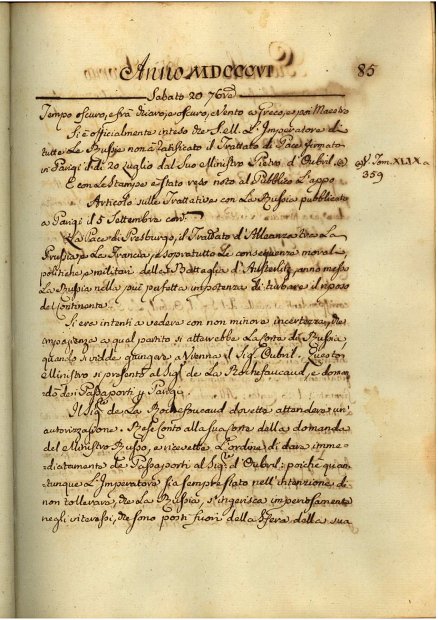 Anno MDCCCVI 85
Sabato 20 7bre
Tempo oscuro, e frà chiaro, e oscuro, e Vento a Greco, e poi Maestro
Si è officialmente inteso che S.E. ll. L'Imperatore di
tutte Le Russie non à ratificato il Trattato di Pace firmato
in Parigi li di 20 Luglio dal Suo Ministro Pietro d'Oubril. (a) (a) V. Tom. XLIX. a
359
E con La Stampa è stato reso noto al Pubblico L'appo
Articolo sulle Trattative con La Russia pubblicato
a Parigi il 5 Settembre
La Pace di Presburgo, il Trattato d'Alleanza tra La
Prussia, e La Francia, e sopratutto Le conseguenze morali,
politiche, e militari della Battaglia d'Austerlitz, anno messa
La Russia nella più perfetta impotenza di turbare il riposo
del Continente.
Si era intenti a vedere con non minore incertezza, che
impazienza a qual partito si atterrebbe La Corte di Russia,
quando si vidde giungere a Vienna il Sig. Oubril. Questo
Ministro si presentò al Sig. de La Rochefoucaud, e doman
dò dei Passaporti p Parigi.
Il Sig. de La Rochefoucaud dovette attendere un'
autorizzazione. Rese conto alla sua Corte della domanda
del Ministro Russo, e ricevette L'ordine di dare imme
diatamente de' Passaporti al Sig. d'Oubril: poichè quan
tunque L'Imperatore sia sempre stato nell'intenzione di
non tollerare, che La Russia, s'ingerisca imperiosamente
negli interessi, che sono posti fuori della Sfera della sua